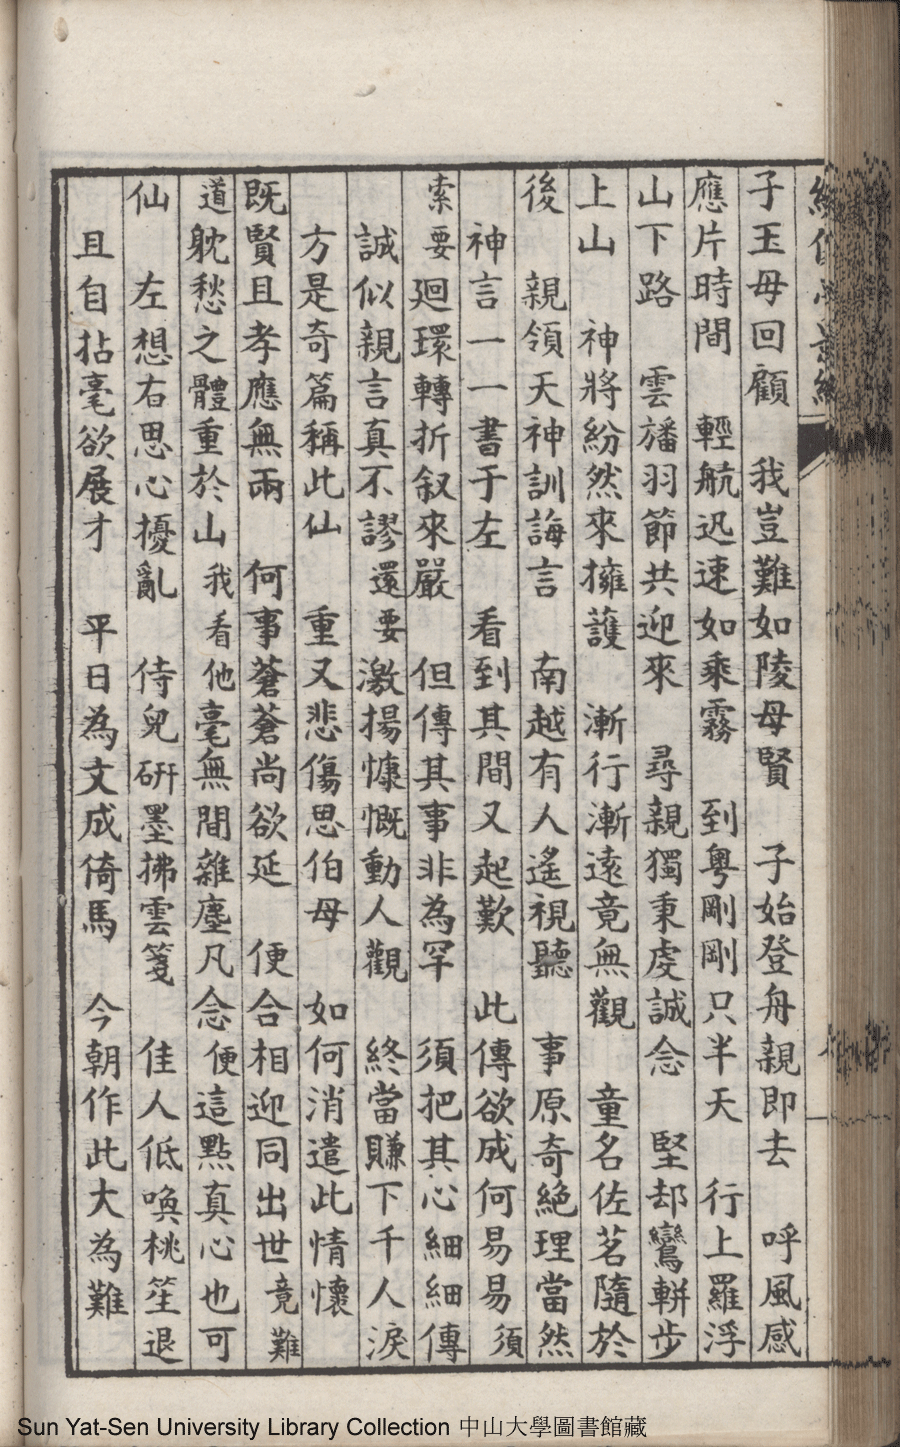 子玉母回顧　我豈難如陵母賢　子始登舟親即去　呼風感
應片時間　輕航迅速如乘霧　到粵剛剛只半天　行上羅浮
山下路　雲旛羽節共迎來　尋親獨秉虔誠念　堅却鸞軿步
上山　神將紛然來擁護　漸行漸遠竟無觀　童名佐茗隨於
後　親領天神訓誨言　南越有人遙視聽　事原奇絕理當然
神言一一書于左　看到其間又起歎　此傳欲成何易易　須
索要廻環轉折叙來嚴　但傳其事非為罕　須把其心細細傳
誠似親言真不謬　還要激揚慷慨動人觀　終當賺下千人淚
方是奇篇稱此仙　重又悲傷思伯母　如何消遣此情懷
既賢且孝應無兩　何事蒼蒼尚欲延　便合相迎同出世　竟難
道躭愁之體重於山　我看他毫無間雜塵凡念　便這點真心也可
仙　左想右思心擾亂　侍兒硏墨拂雲箋　佳人低喚桃笙退
且自拈毫欲展才　平日為文成倚馬　今朝作此大為難
Sun Yat-Sen University Library Collection 中山大學圖書館藏